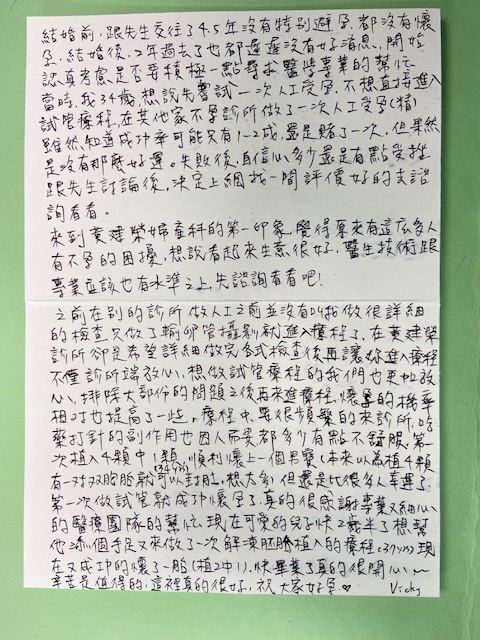 結婚前,跟先生交往了4.5年沒有特別避孕,都沒有懷
孕,結婚後,2年過去了也都遲遲沒有好消息,開始
認真考慮是否要積極一點尋求醫學專業的幫忙
當時,我34歲,想說先嘗試一次人工受孕,不想直接進入
試管療程,在其他家不孕診所做了一次人工受孕(精)
雖然知道成功率可能只有1~2成,還是賭了一次,但果然
是沒有那麼好運。失敗後,自信心多少還是有點受挫
跟先生討論後,決定上網找一間評價好的去諮
詢看看。
來到黃建榮婦產科的第一印象,覺得原來有這広多人
有不孕的困擾,想說看起來生意很好,醫生技術跟
專業应該也有水準之上,先諮詢看看吧!
之前在別的診所做人工之前並沒有叫我做很詳細
的檢查只做了輸卵管攝影就進入療程了,在黃建榮
診所卻是希望詳細做完各式檢查後再讓妳進入療程
不僅診所端放心,想做試管療程的我們也更加放
心,排除大部份的問題之後再來進療程,懷孕的機率
相对也提高了一些,療程中要很頻繁的來診所,吃
藥打針的副作用也因人而異都多少有點不舒服,第
一次植入4顆中1顆,順利懷上一個男寶(本來以為植4顆
有一对双胞胎就可以封肚,想太多)但還是比很多人幸運了,
第一次做試管就成功懷孕了,真的很感謝專業又細心
的醫療團隊的幫忙,現在可愛的兒子快2歲半了想幫
他添個手足又來做了一次解凍胚胎植入的療程,現
在又成功的懷了一胎(植2中1),快畢業了真的很開心~
辛苦是值得的,這裡真的很好,祝大家好孕♥ Vicky